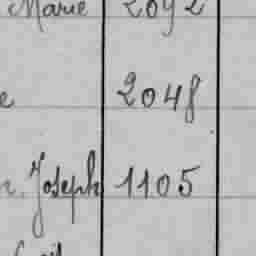 Marie 2092
e 2048
r. Joseph 1105